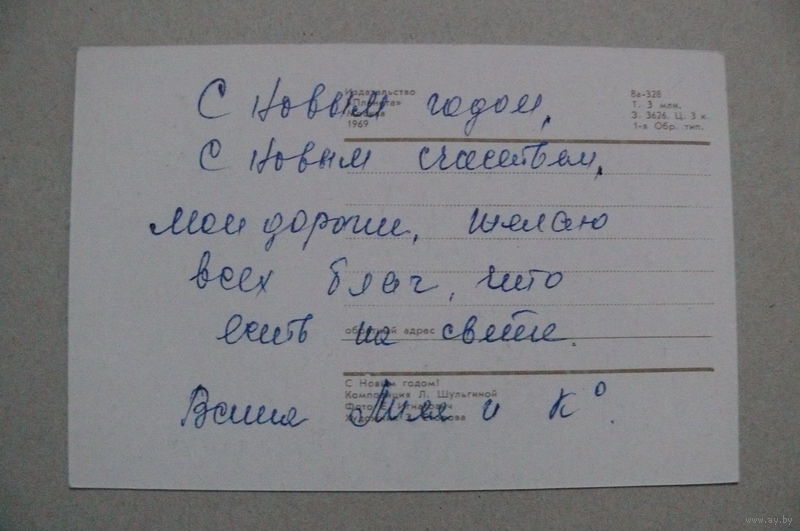 С Новым годом,
С Новым счастьем,
Мои дорогие, желаю
всех благ, что
есть на свете.
Ваша и К°
Издательство
«Планета»
Москва
1969
Ве-328
Т. 3 млн.
З. 3626. Ц. 3 к.
1-я Обр. тип.
обратный адрес
С Новым годом!
Композиция Л. Шульгиной
Фото Игнатович
Художник
www.ay.by